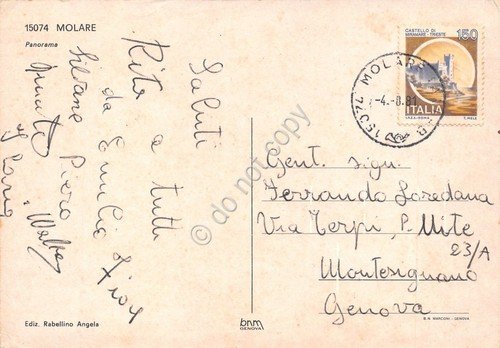 15074 MOLARE
Panorama
Saluti
Rita a tutti
da Emilia
Silvana Piero
Ediz. Rabellino Angela
bnm
GENOVA
do not copy
CASTELLO DI
MIRAMARE - TRIESTE
150
ITALIA
I.P.Z.S. - ROMA
T. MELE
15074 MOLARE
-4.-8.81
Gent. sign.
Ferrando Loredana
Via Terpi, P. Mite
23/A
Montesignano
Genova
B.N. MARCONI - GENOVA